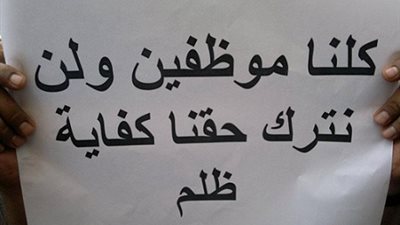 كلنا موظفين ولن
نترك حقنا كفاية
ظلم